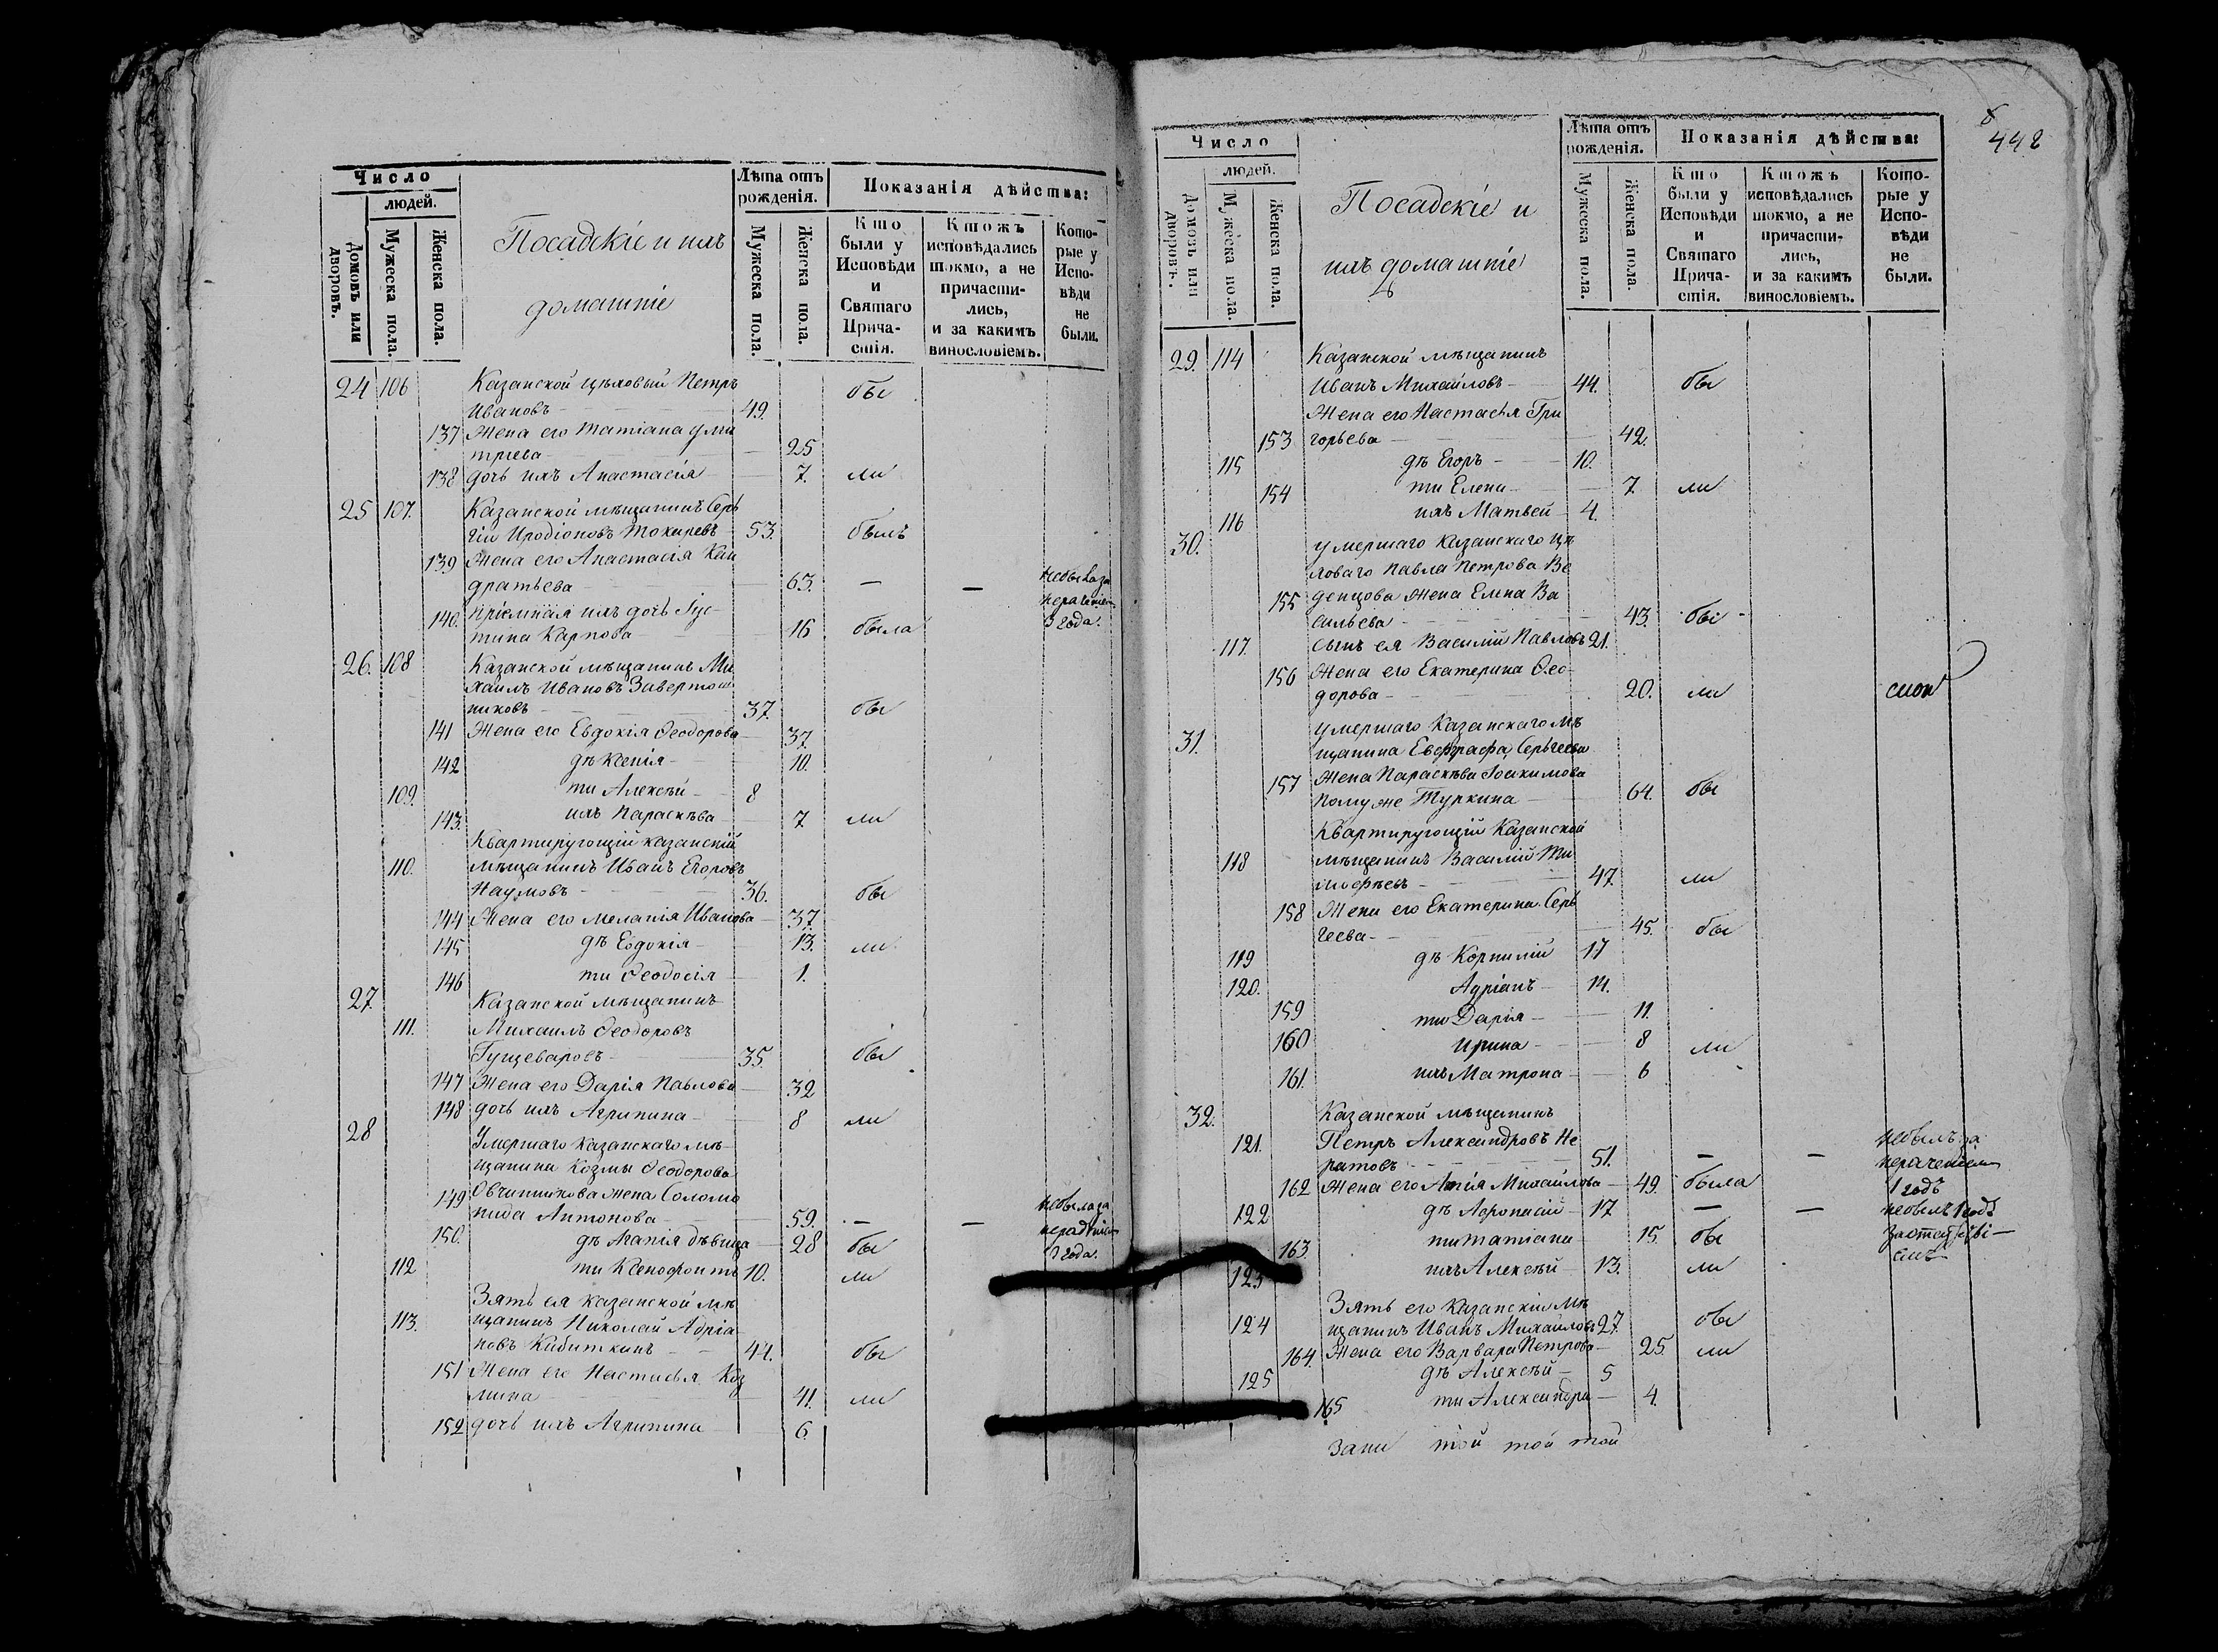 Число
людей.
Домовъ или дворовъ.
Мужеска пола.
Женска пола.
Посадскіе и ихъ
домашніе
Лѣта отъ рожденія.
Мужеска пола.
Женска пола.
Показанія дѣйства:
Кто были у Исповѣди и Святаго Прича-стія.
Ктожъ исповѣдались токмо, а не причасти-лись, и за какимъ винословіемъ.
Кото-рые у Испо-вѣди не были.
24 106 Казанской цѣховый Петръ бы
Ивановъ 49.
137 Жена его Татіана Дми
тріева 25
138 дочь ихъ Анастасія 7. ли
25 107. Казанской мѣщанинъ Сер
гій Иродіоновъ Токаревъ 53. былъ
139 Жена его Анастасія Кон
дратьева 63. — — небыла за
нераченіем
3 года.
140. Пріемная ихъ дочь Іус-
тина Карпова 16 была
26. 108 Казанской мѣщанинъ Ми
хаилъ Ивановъ Завертош
никовъ 37. бы
141 Жена его Евдокія Ѳеодорова 37.
142 дѣ Ксенія 10.
109. ти Алексѣй 8
143. ихъ Параскѣва 7. ли
Квартирующій казанскій
110. мѣщанинъ Иванъ Егоровъ
Наумовъ 36. бы
144 Жена его Меланія Иванова 37.
145 дѣ Евдокія 13. ли
146 ти Ѳеодосія 1.
27 Казанской мѣщанинъ
111. Михаилъ Ѳеодоровъ
Гущеваровъ 35. бы
147 Жена его Дарія Павлова 32
148 дочь ихъ Агрипина 8 ли
28 Умершаго Казанскаго мѣ-
щанина Козмы Ѳеодорова
149 Овчинникова жена Соломо
нида Антонова 59. — — небыла за
нерадѣніем
3 года.
150. дѣ Агапія дѣвица 28 бы
112 ти Ксенофонтъ 10. ли
Зять ея казанской мѣ
113. щанинъ Николай Адріа
новъ Кибиткинъ 44. бы
151 Жена его Настасья Коз
мина 41. ли
152 дочь ихъ Агрипина 6.
442
Число
людей.
Домовъ или дворовъ.
Мужеска пола.
Женска пола.
Посадскіе и
ихъ домашніе
Лѣта отъ рожденія.
Мужеска пола.
Женска пола.
Показанія дѣйства:
Кто были у Исповѣди и Святаго Прича-стія.
Ктожъ исповѣдались токмо, а не причасти-лись, и за какимъ винословіемъ.
Кото-рые у Испо-вѣди не были.
29. 114 Казанской мѣщанинъ
Иванъ Михайловъ 44. бы
Жена его Настасья Гри
153 горьева 42.
115 дѣ Егоръ 10.
154 ти Елена 7. ли
116 ихъ Матвей 4.
30. умершаго казанскаго цѣ
ховаго Павла Петрова Ве
155 денцова жена Елена Ва
сильева 43. бы
117. сынъ ея Василій Павловъ 21.
156 Жена его Екатерина Ѳео-
дорова 20. ли
31. умершаго Казанскаго мѣ
щанина Евграфа Сергеева
157 жена Параскѣва Іоакимова
помуже Туркина 64. бы
Квартирующій Казанской
118 мѣщанинъ Василій Ти
моѳеевъ 47. ли
158 Жена его Екатерина Сер
геева 45. бы
119 дѣ Корнилій 17
120. Адріанъ 14.
159 ти Дарія 11.
160 Ирина 8 ли
161. ихъ Матрона 6
32. Казанской мѣщанинъ
121. Петръ Александровъ Не
ратовъ 51. — — небылъ за
нераченіем
1 годъ
162 Жена его Анія Михайлова 49. была
122 дѣ Аѳонасій 17 — — небылъ 1 годъ
163. ти Татіана 15. бы
123 ихъ Алексѣй 13. ли
Зять его Казанскій мѣ
124 щанинъ Иванъ Михайловъ 27. бы
164. Жена его Варвара Петрова 25. ли
125 дѣ Алексѣй 5
165 ти Александра 4.